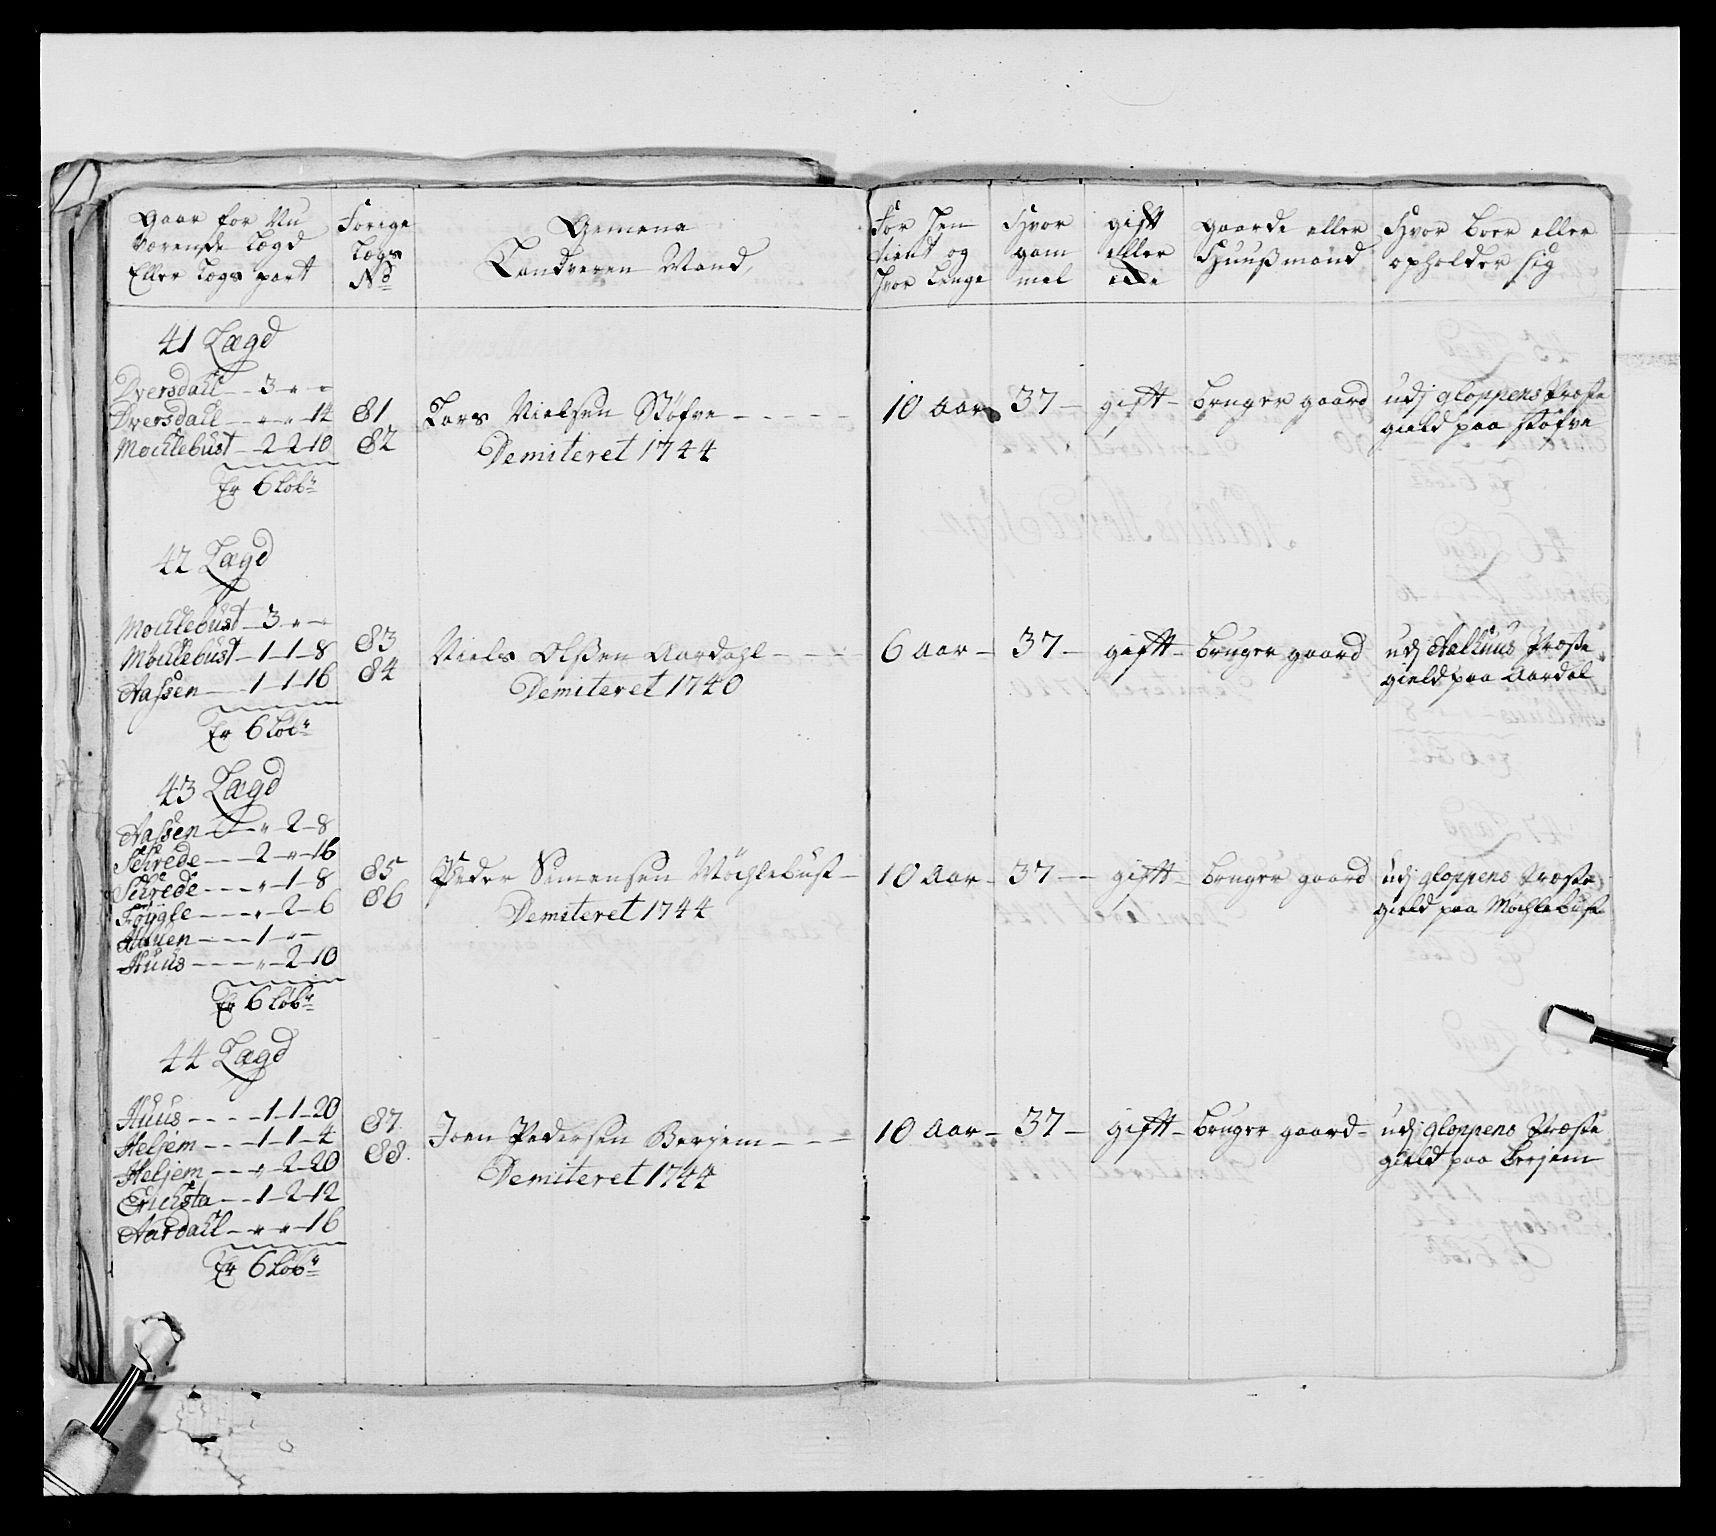 Gaar for Nu
værende Lægd
Eller Lægs part
Forige
Lægs
No
Gemene
Landværn Mand,
For Hen
tient og
Hvor Lenge
Hvor
gam
mel
gift
eller
eÿ
Gaarde eller
Huußmand
Hvor boer eller
opholder sig
41 Lægd
Dversdahl - 3 " "
Dversdahl - " " 14
Mochlebust - 2 2 10
Er 6 Løb
81
82
Lars Nielsen Støfve
Demiteret 1744
10 Aar
37
gift
bruger gaard
udj gloppens Præste
gield paa Støfve
42 Lægd
Mochlebust - 3 " "
Mochlebust - 1 - 1 - 8
Aassen - 1 - 1 - 16
Er 6 Løb
83
84
Niels Olßen Aardahl
Demiteret 1740
6 Aar
37
gift
bruger gaard
udj Aelhuus Præste
gield paa Aardal
43 Lægd
Aassen - " - 2 - 8
Schrede - 2 - " - 16
Schrede - " - 1 - 8
Føÿgle - " - 2 - 6
Hauen - 1 - " -
Huus - " - 2 - 10
Er 6 Løb
85
86
Peder Simensen Møchlebust
Demiteret 1744
10 Aar
37
gift
bruger gaard
udj gloppens Præste
gield paa Mochlebust
44 Lægd
Huus - 1 - 1 - 20
Heljem - 1 - 1 - 4
Heljem - " - 2 - 20
Erichsta - 1 - 2 - 12
Aardahl - " " - 16
Er 6 Løb
87
88
Joen Pedersen Berjem
Demiteret 1744
10 Aar
37
gift
bruger gaard
udj gloppens Præste
gield paa Berjem